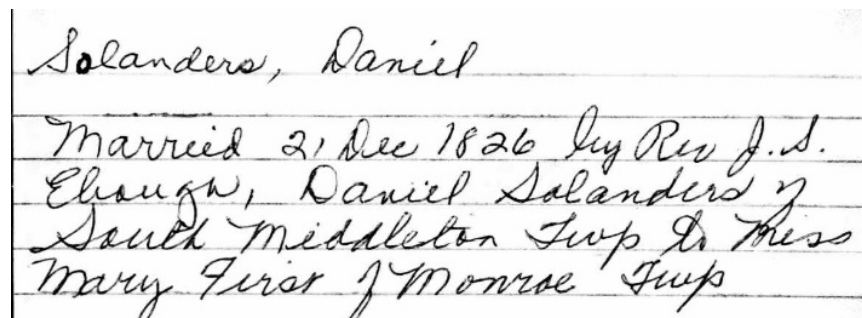 Solanders, Daniel
Married 21 Dec 1826 by Rev J.S.
Ebaugh, Daniel Solanders of
South Middleton Twp to Miss
Mary First of Monroe Twp